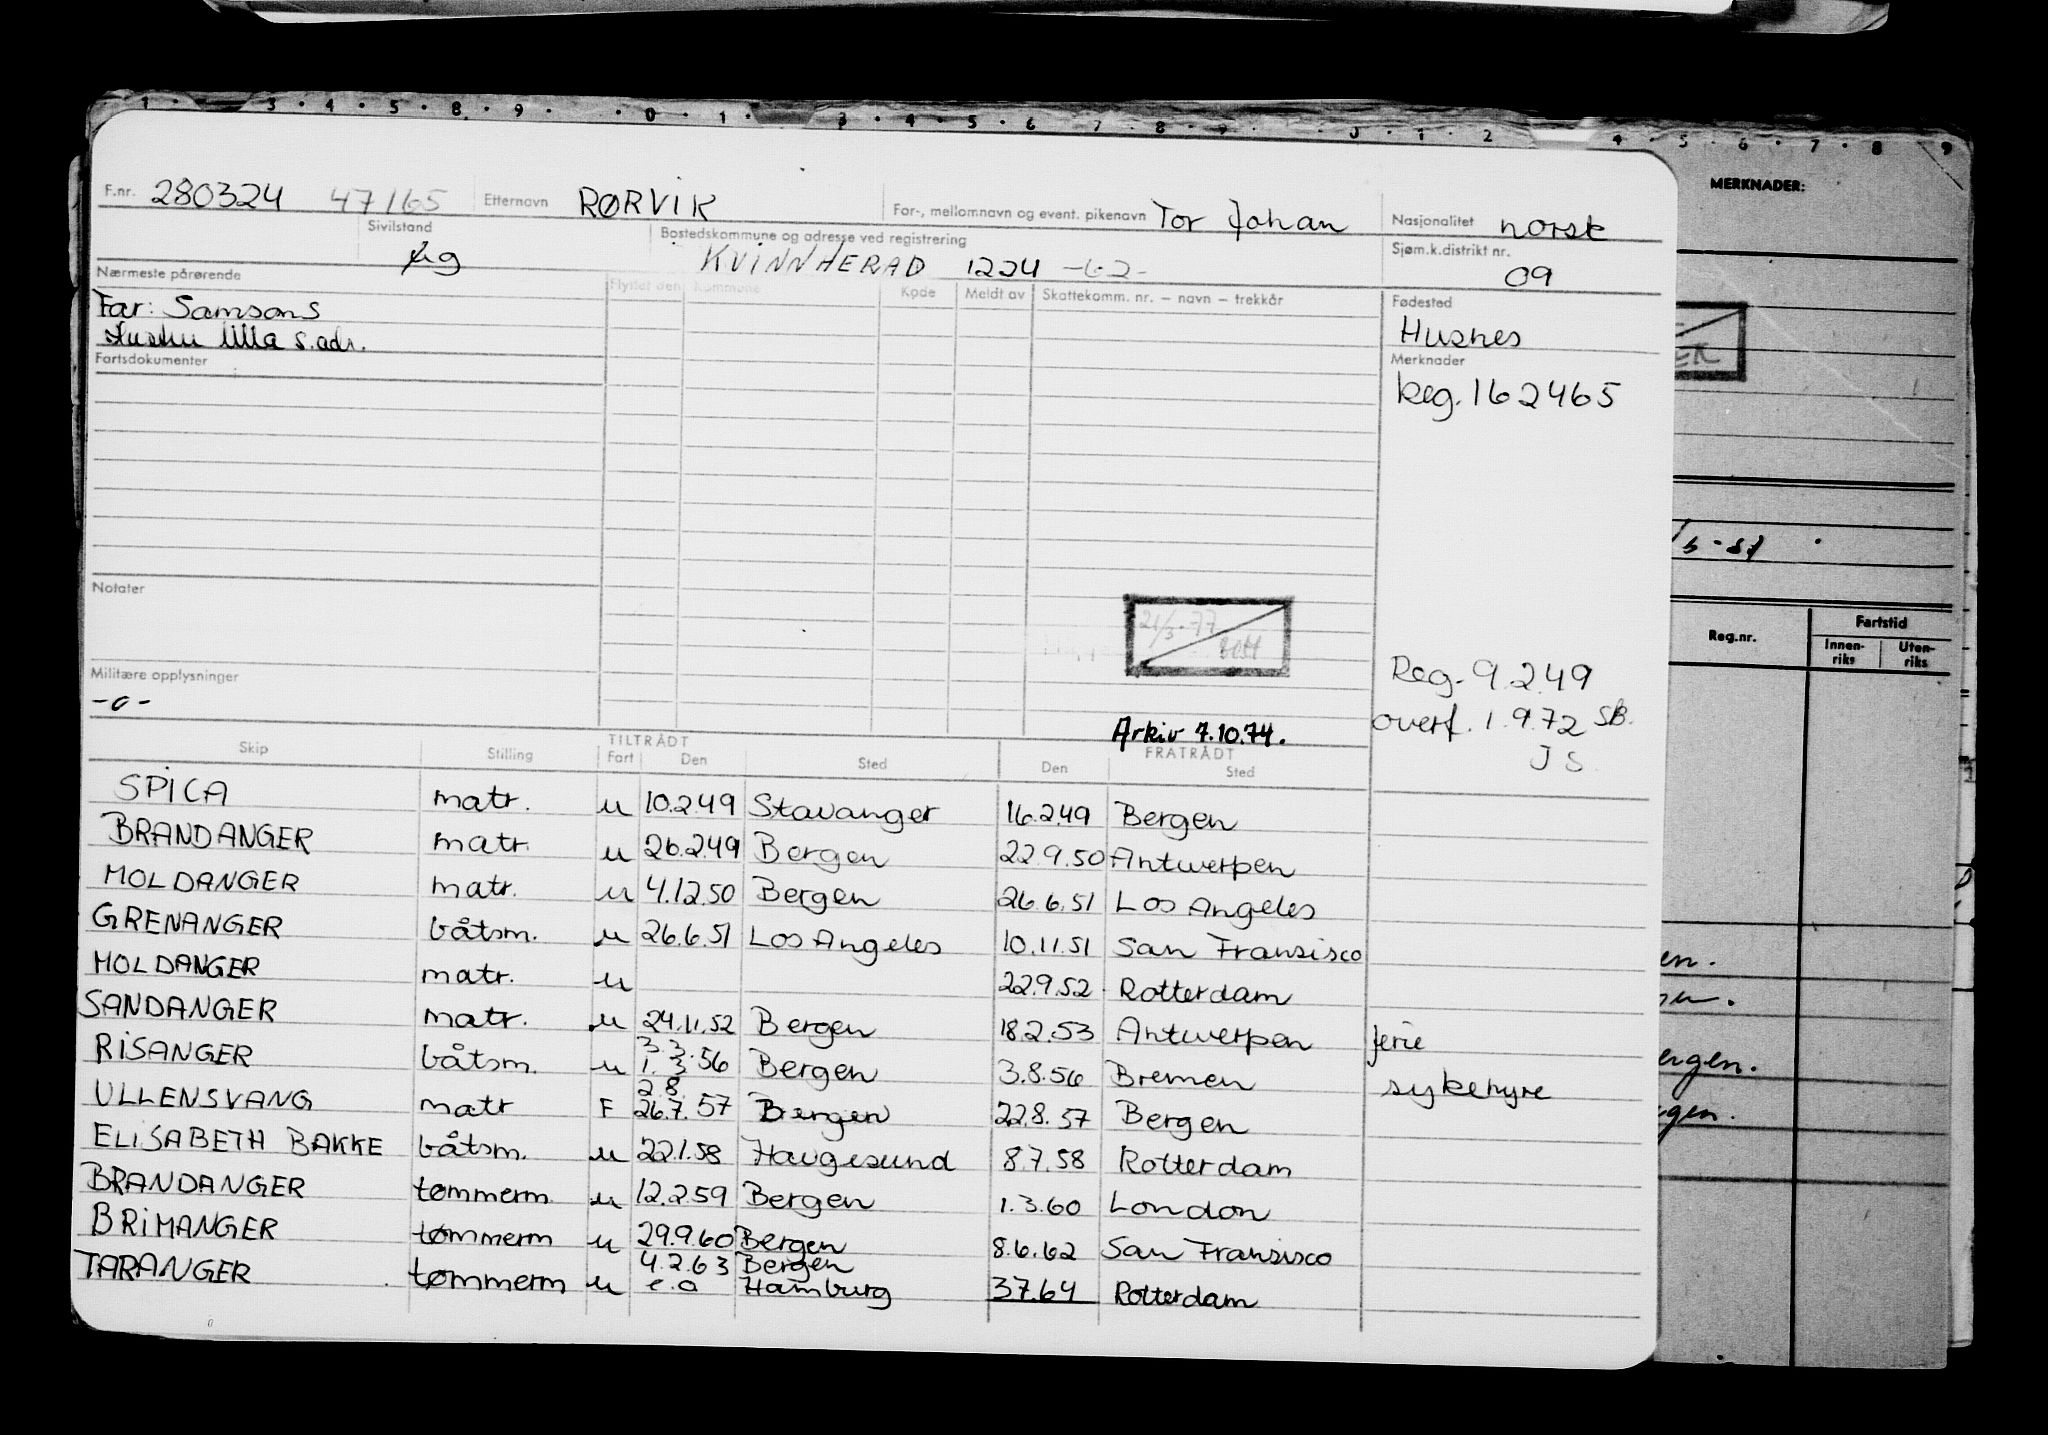 1 · 3 · 4 · 5 · 8 · 9 · 0 · 1 · 3 · 4 · 5 · 6 · 7 · 8 · 9 · 1 · 2 4 · 5 · 6 · 7 · 8 9
MERKNADER:
F.nr. 280324 47165 Etternavn RØRVIK For-, mellomnavn og event. pikenavn Tor Johan Nasjonalitet norsk
Sivilstand Bostedskommune og adresse ved registrering Sjøm.k.distrikt nr.
KVINNHERAD 1224 -62- 09
Nærmeste pårørende Flyttet den Kommune Kode Meldt av Skattekomm. nr. — navn — trekkår Fødested
Far: Samson S Husnes
Hustru Ulla s.adr.
Fartsdokumenter Merknader
Reg. 162465
/5-87
Notater
21/3-77
Reg.nr. Fartstid
Innen-riks Uten-riks
Militære opplysninger Reg. 9.2.49
-o- overf. 1.9.72 SB.
Arkiv 7.10.74. JS
TILTRÅDT FRATRÅDT
Skip Stilling Fart Den Sted Den Sted
SPICA matr. u 10.2.49 Stavanger 16.2.49 Bergen
BRANDANGER matr. u 26.2.49 Bergen 22.9.50 Antwerpen
MOLDANGER matr. u 4.12.50 Bergen 26.6.51 Los Angeles
GRENANGER båtsm. u 26.6.51 Los Angeles 10.11.51 San Fransisco
MOLDANGER matr. u 22.9.52 Rotterdam
SANDANGER matr. u 24.11.52 Bergen 18.2.53 Antwerpen ferie
3.3.
RISANGER båtsm. u 1.3.56 Bergen 3.8.56 Bremen sykehyre
2.8.
ULLENSVANG matr F 26.7.57 Bergen 22.8.57 Bergen
ELISABETH BAKKE båtsm. u 22.1.58 Haugesund 8.7.58 Rotterdam
BRANDANGER tømmerm. u 12.2.59 Bergen 1.3.60 London
BRIMANGER tømmerm u 29.9.60 Bergen 8.6.62 San Fransisco
4.2.63 Bergen
TARANGER tømmerm u e.a Hamburg 3.7.64 Rotterdam